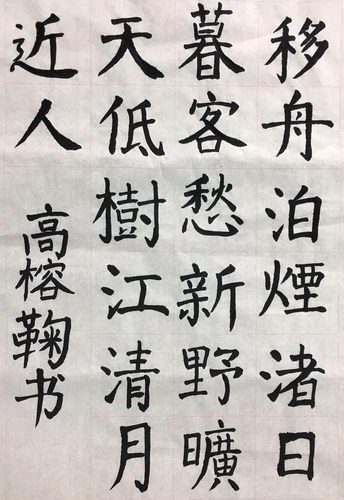 移舟泊煙渚日
暮客愁新野曠
天低樹江清月
近人
高榕鞠书